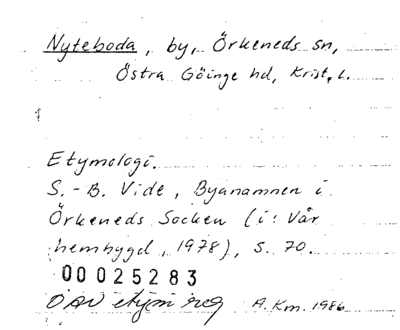 Nyteboda, by, Örkeneds sn,
Östra Göinge hd, Krist. l.
Etymologi.
S.-B. Vide, Byanamnen i
Örkeneds Socken (i: Vår
hembygd, 1978), s. 70.
00025283
OAU etym reg A. Km. 1986